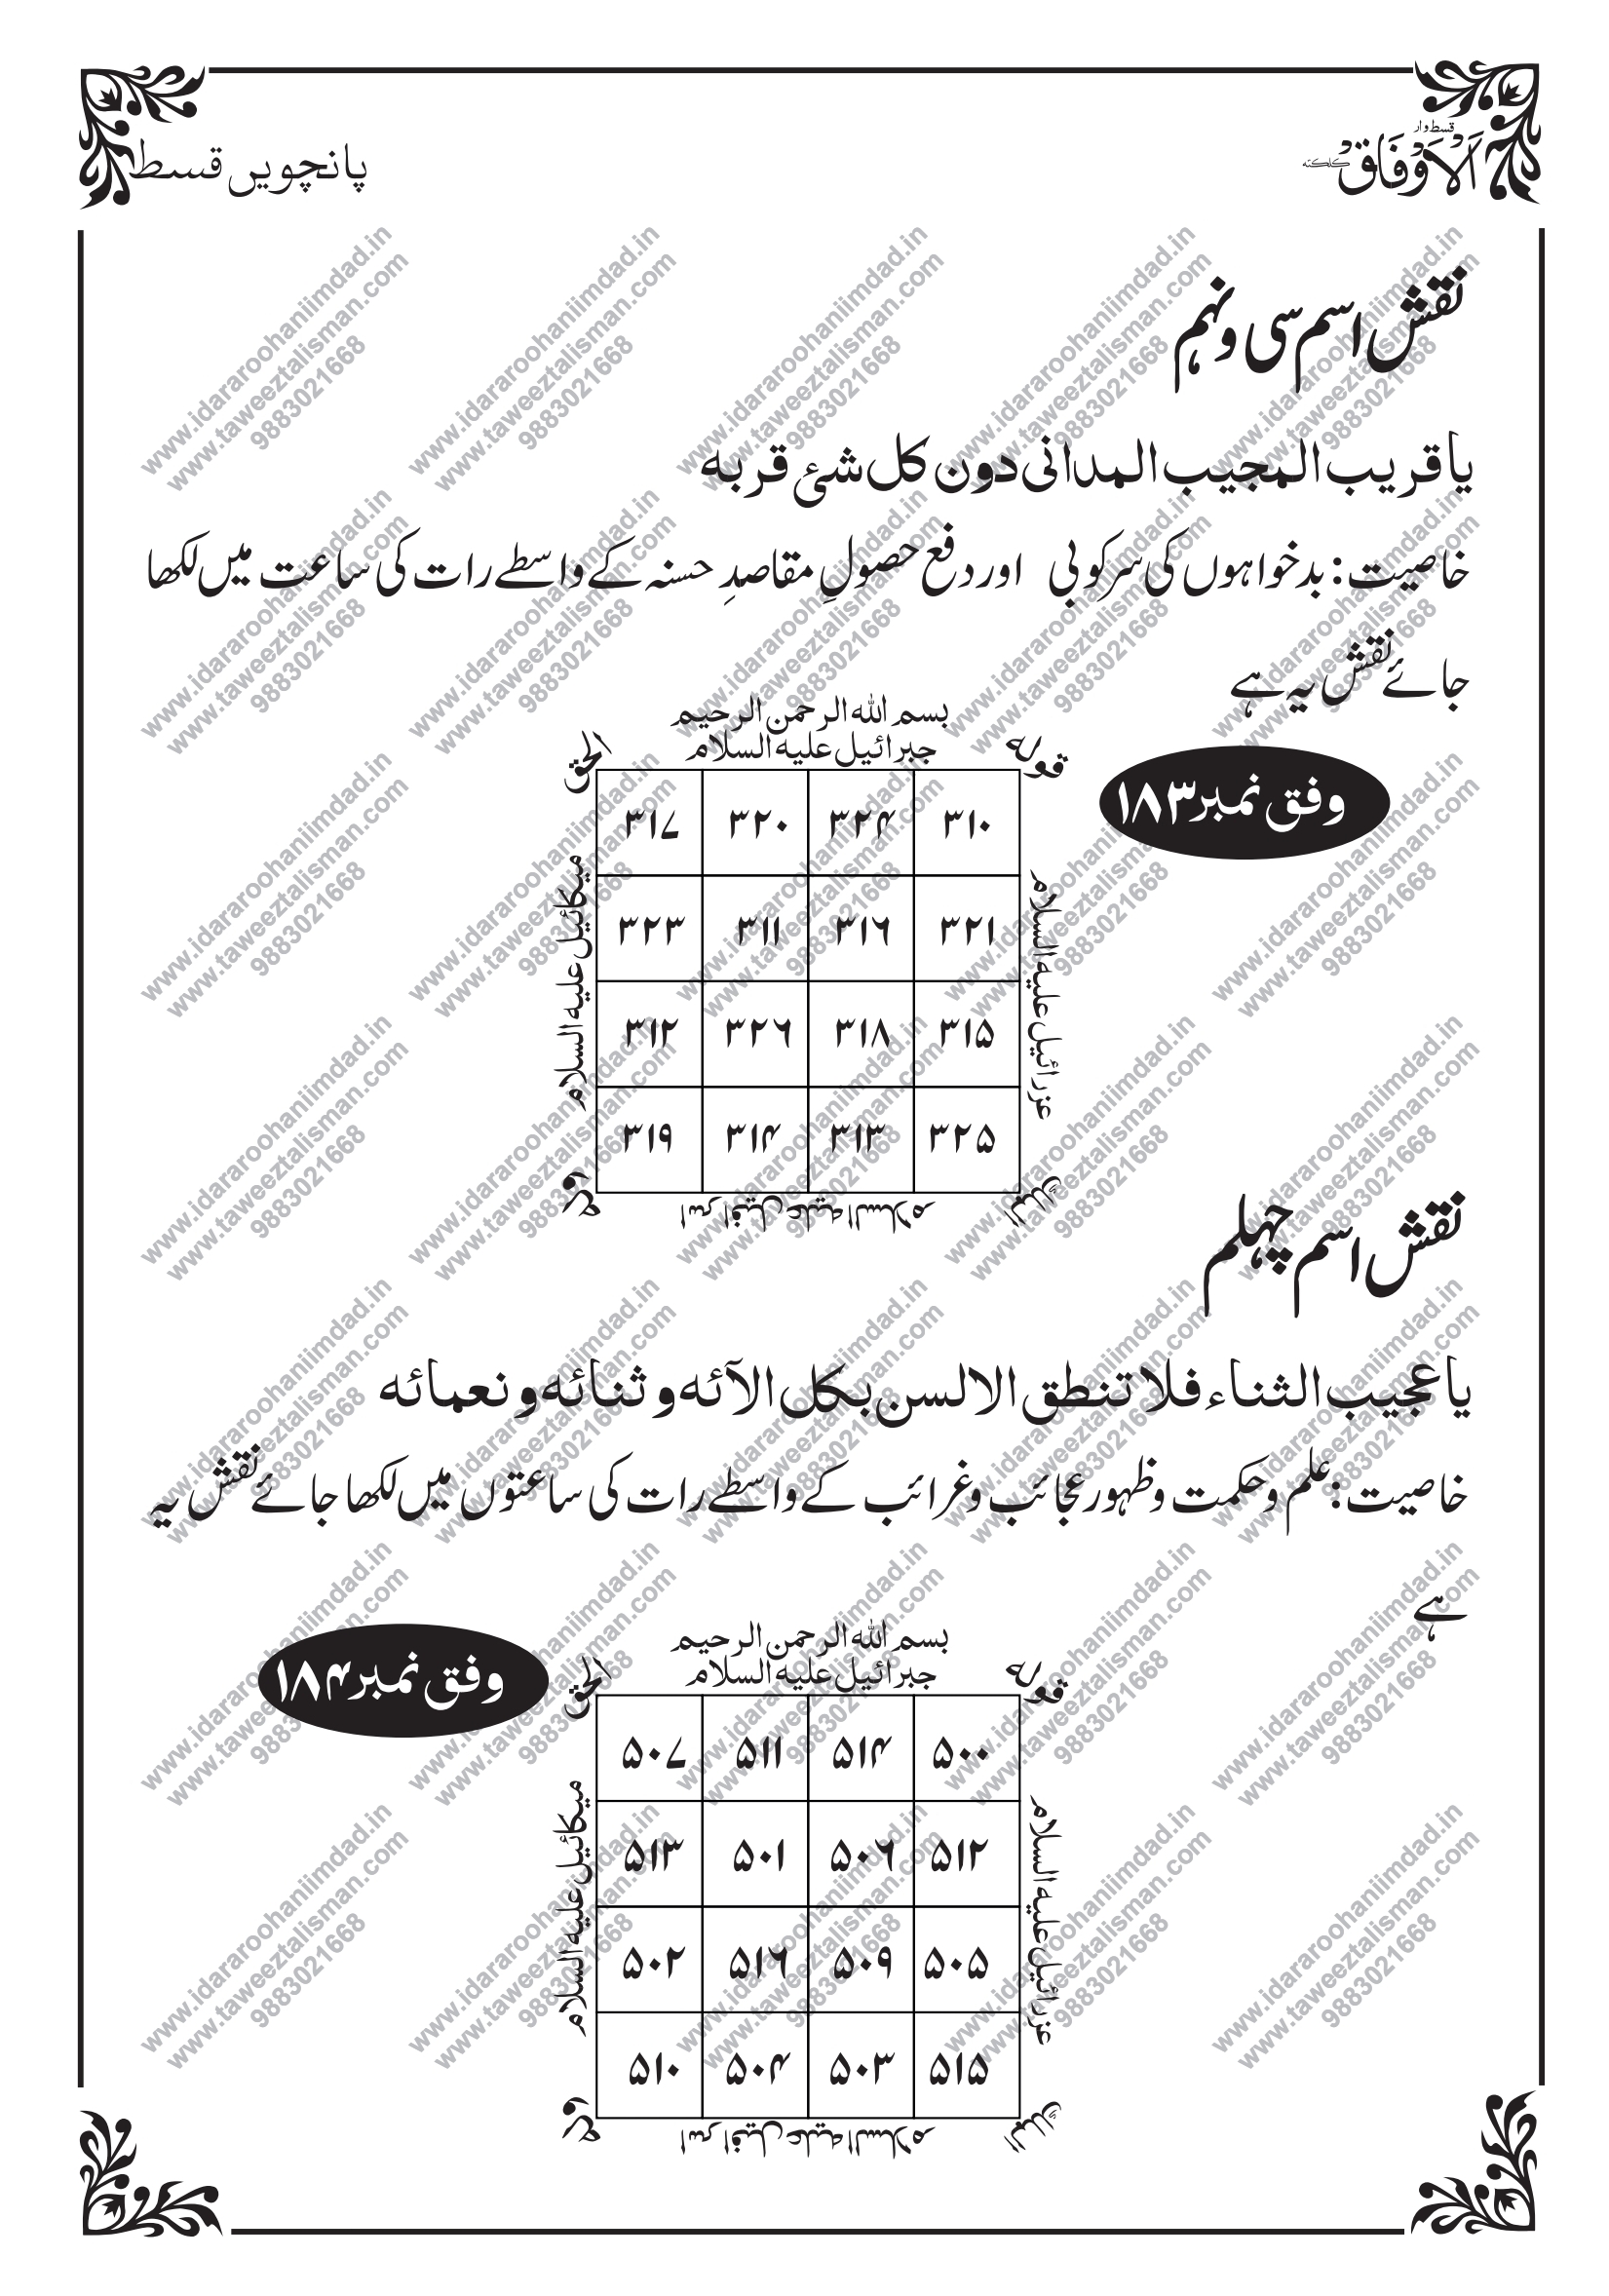 قسط وار
الاوفاق
کلکتہ
پانچویں قسط
نقش اسم سی و نہم
یا قریب المجیب المدانی دون کل شئ قربه
خاصیت: بدخواہوں کی سرکوبی اور دفع حصولِ مقاصدِ حسنہ کے واسطے رات کی ساعت میں لکھا
جائے نقش یہ ہے
وفق نمبر ۱۸۳
بسم الله الرحمن الرحيم
جبرائیل علیہ السلام
قوله
الحق
۳۱۷ ۳۲۰ ۳۲۴ ۳۱۰
۳۲۳ ۳۱۱ ۳۱۶ ۳۲۱
۳۱۲ ۳۲۶ ۳۱۸ ۳۱۵
۳۱۹ ۳۱۴ ۳۱۳ ۳۲۵
میکائیل علیہ السلام
عزرائیل علیہ السلام
اسرافیل علیہ السلام
وله
الملك
نقش اسم چہلم
یا عجیب الثناء فلا تنطق الالسن بکل الآئه و ثنائه و نعمائه
خاصیت: علم و حکمت و ظہور عجائب و غرائب کے واسطے رات کی ساعتوں میں لکھا جائے نقش یہ
ہے
وفق نمبر ۱۸۴
بسم الله الرحمن الرحيم
جبرائیل علیہ السلام
قوله
الحق
۵۰۷ ۵۱۱ ۵۱۴ ۵۰۰
۵۱۳ ۵۰۱ ۵۰۶ ۵۱۲
۵۰۲ ۵۱۶ ۵۰۹ ۵۰۵
۵۱۰ ۵۰۴ ۵۰۳ ۵۱۵
میکائیل علیہ السلام
عزرائیل علیہ السلام
اسرافیل علیہ السلام
وله
الملك
www.idararoohaniimdad.in
www.taweeztalisman.com
9883021668